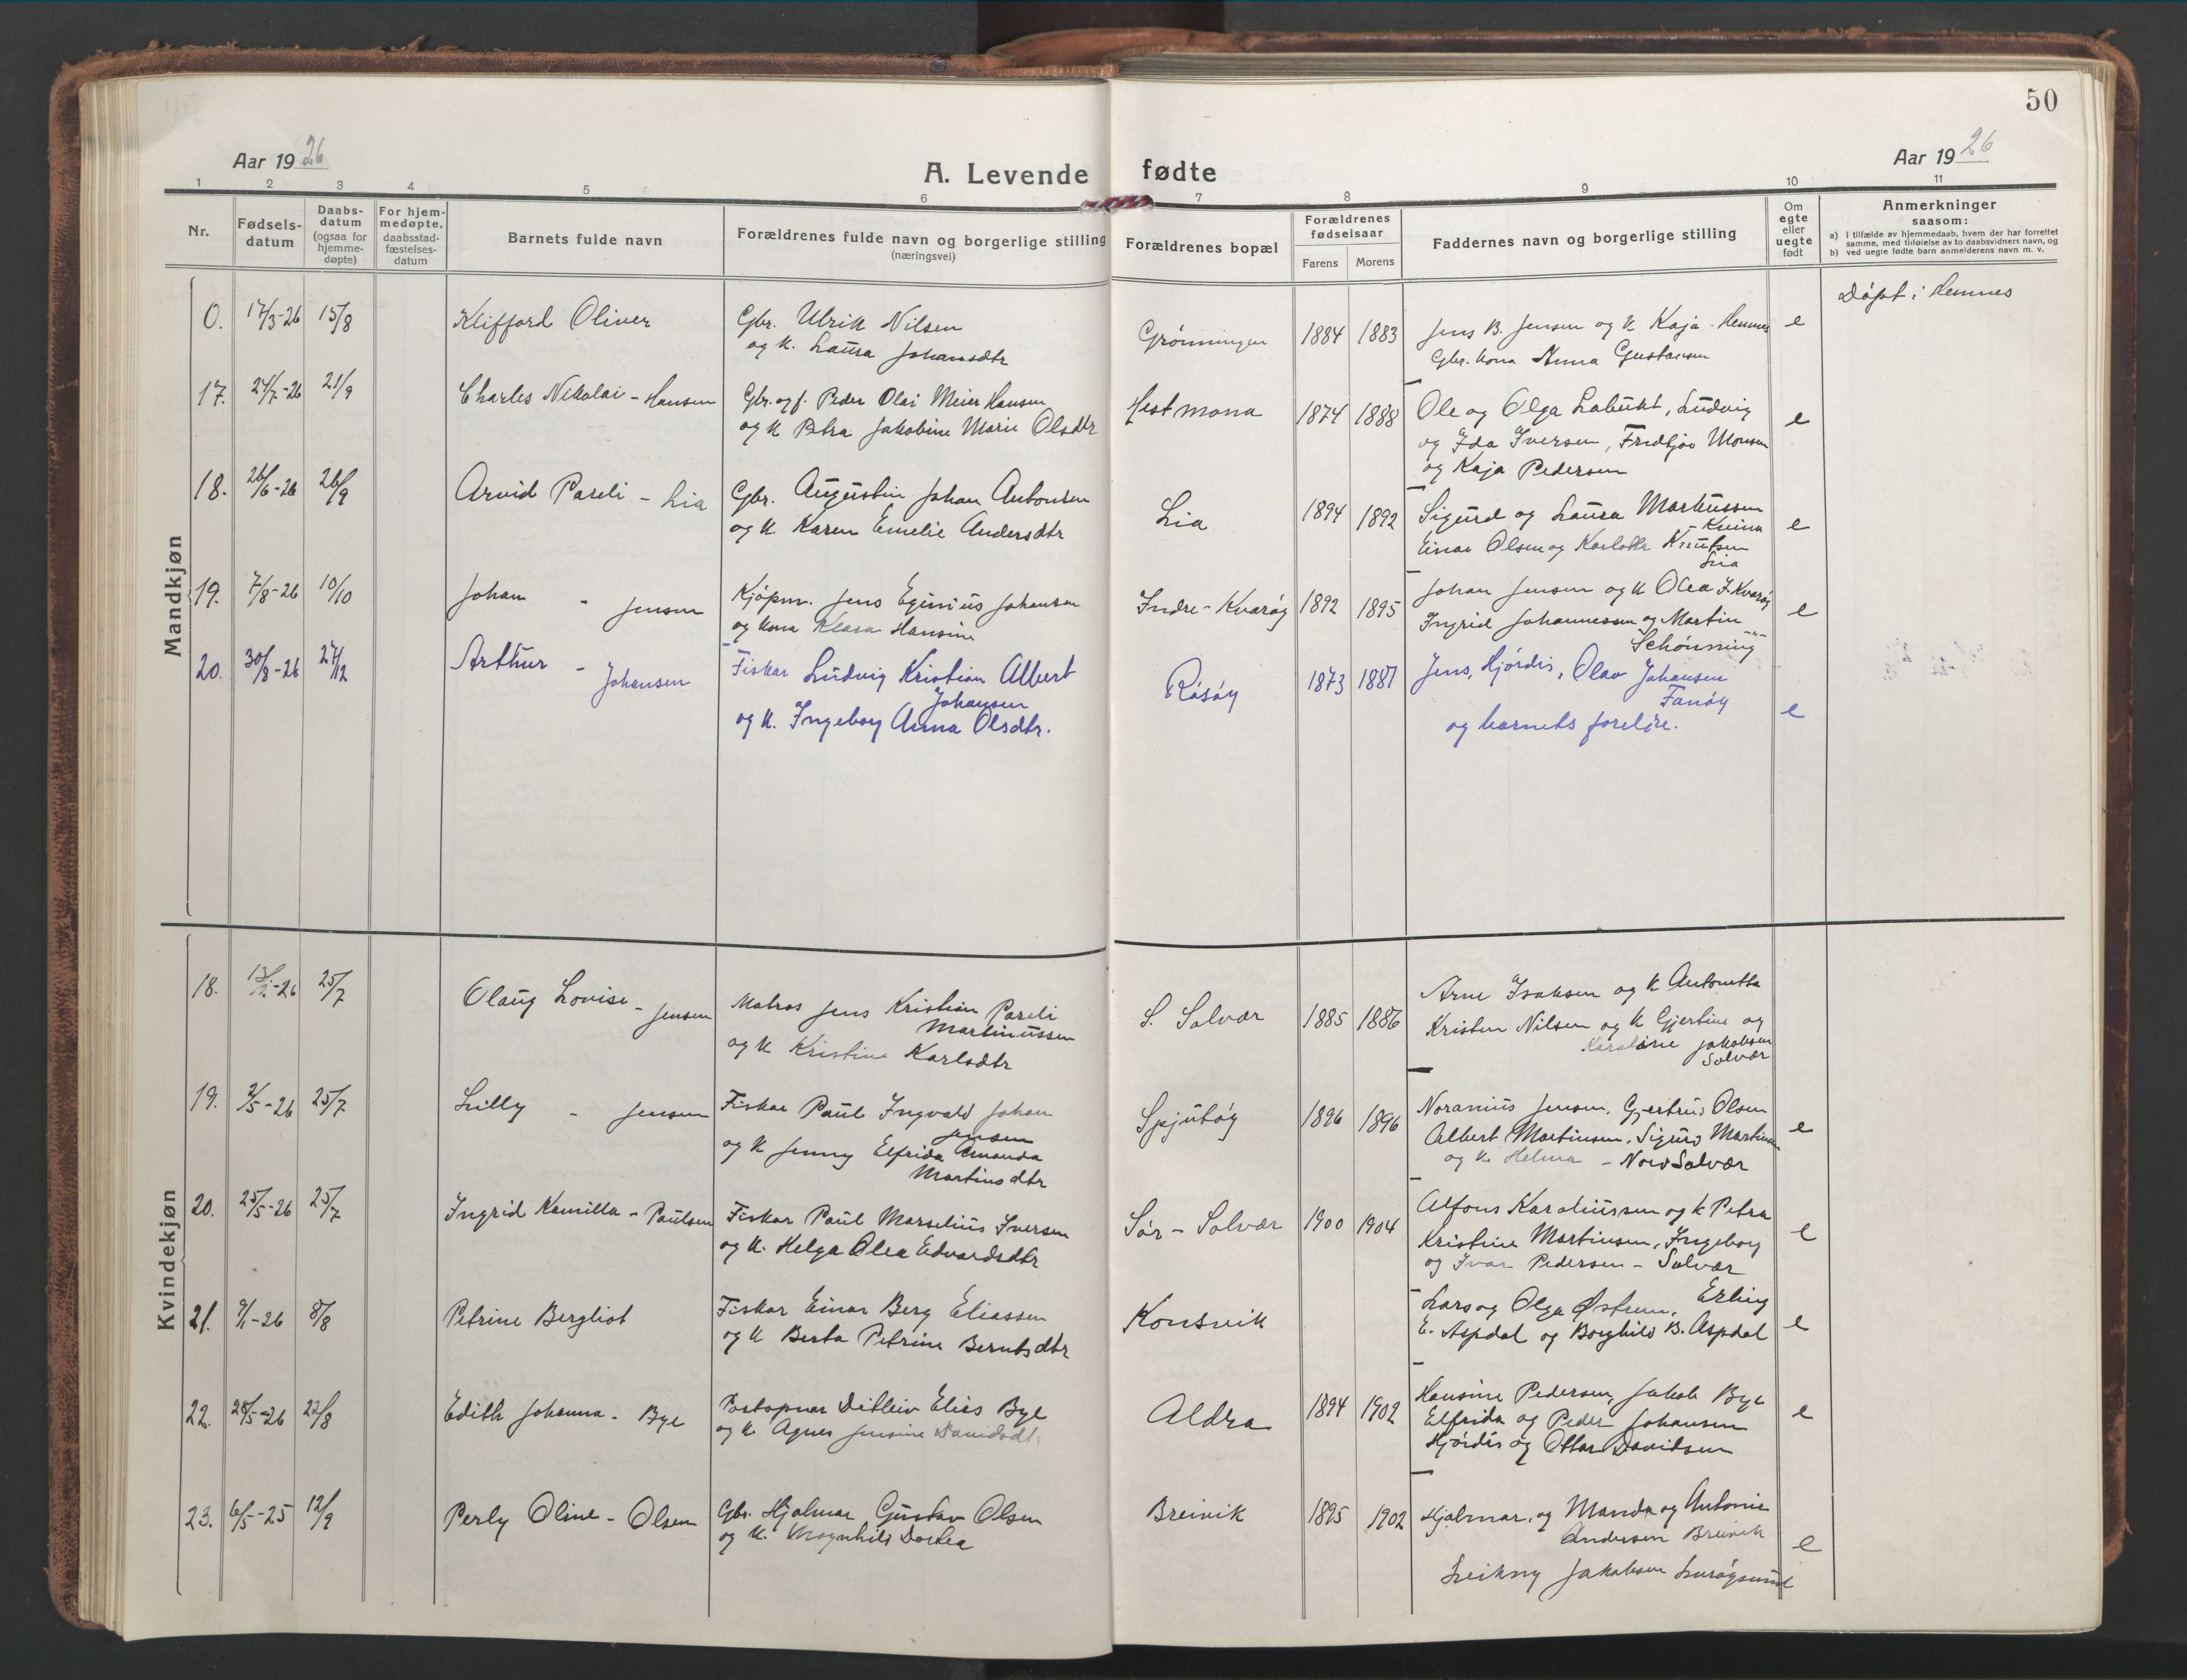 50
Aar 1926
A. Levende fødte
Aar 1926
1 2 3 4 5 6 7 8 9 10 11
Nr.
Fødsels-
datum
Daabs-
datum
(ogsaa for
hjemme-
døpte)
For hjem-
medøpte,
daabsstad-
fæstelses-
datum
Barnets fulde navn
Forældrenes fulde navn og borgerlige stilling
(næringsvei)
Forældrenes bopæl
Forældrenes
fødselsaar
Farens Morens
Faddernes navn og borgerlige stilling
Om
egte
eller
uegte
født
Anmerkninger
saasom:
a) i tilfælde av hjemmedaab, hvem der har forrettet
samme, med tilføielse av to daabsvidners navn, og
b) ved uegte fødte barn anmelderens navn m. v.
Mandkjøn
0. 17/3-26 15/8 Klifford Oliver
Gbr. Ulrik Nilsen
og k. Laura Johansdtr
Grønningen 1884 1883
Jens B. Jensen og k Kaja - Hemnes
Gbr. kona Anna Gustavsen
e
Døpt i Hemnes
17. 24/7-26 21/9 Charles Nikolai - Hansen
Gbr. og f. Peder Olai Meier Hansen
og k Petra Jakobine Marie Olsdtr
Hestmona 1874 1888
Ole og Olga Labukt, Ludvig
og Ida Iversen, Fridtjov Monsen
og Kaja Pedersen
e
18. 26/6-26 26/9 Arvid Pareli - Lia
Gbr. Augustin Johan Antonsen
og k. Karen Emelie Andersdtr
Lia 1894 1892
Sigurd og Laura Markussen
Einar Olsen og Karlotte Knutsen
Lia
e
19. 7/8-26 10/10 Johan - Jensen
Kjøpm. Jens Eginius Johansen
og kona Klara Hansine
Indre-Kvarøy 1892 1895
Johan Jensen og k Olea I. Kvarøy
Ingrid Johannessen og Martin
Schønning -"-
e
20. 30/8-26 27/12 Arthur - Johansen
Fiskar Ludvig Kristian Albert
Johansen
og k. Ingeborg Anna Olsdtr.
Råsøy 1873 1887
Jens, Hjørdis, Olav Johansen
Fanøy
og barnets foreldre.
e
Kvindekjøn
18. 13/2-26 25/7 Olaug Lovise - Jensen
Matros Jens Kristian Pareli
Martinussen
og k Kristine Karlsdtr
S. Solvær 1885 1886
Arne Isaksen og k Antonetta
Kristen Nilsen og k Gjertine og
Karoline Jakobsen
Solvær
19. 2/5-26 25/7 Lilly - Jensen
Fiskar Paul Ingvald Johan
Jensen
og k Jenny Elfrida Amanda
Martinsdtr
Spjutøy 1896 1896
Noranius Jensen, Gjertrud Olsen
Albert Martinsen, Sigurd Martinsen
og k. Helma - Nord Solvær
e
20. 25/5-26 25/7 Ingrid Kamilla - Paulsen
Fiskar Paul Marselius Iversen
og k. Helga Olea Edvardsdtr
Sør-Solvær 1900 1904
Alfons Karoliussen og k Petra
Kristine Martinsen, Ingeborg
og Ivar Pedersen - Solvær
e
21. 9/1-26 8/8 Petrine Bergliot
Fiskar Einar Berg Eliassen
og k Berta Petrine Berntsdtr
Konsvik
Lars og Olga Østrem, Erling
E. Aspdal og Borghild B. Aspdal
e
22. 28/5-26 22/8 Edith Johanna - Bye
Postopnar Ditleiv Elias Bye
og k. Agnes Jensine Davidsdtr
Aldra 1894 1902
Hansine Pedersen, Jakob Bye
Elfrida og Peder Johansen
Hjørdis og Ottar Davidsen
e
23. 6/5-25 12/9 Perly Oline - Olsen
Gbr. Hjalmar Gustav Olsen
og k. Magnhild Dortea
Breivik 1895 1902
Hjalmar, og Manda og Antonie
Andersen Breivik
Leikny Jakobsen Lurøysund
e